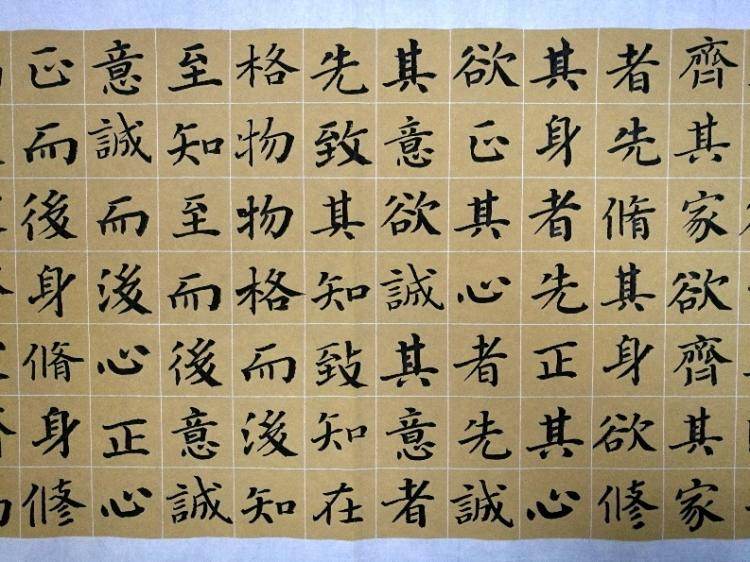 齊其家欲齊其家
者先脩其身欲修
其身者先正其心
欲正其心者先誠
其意欲誠其意者
先致其知致知在
格物物格而後知
至知至而後意誠
意誠而後心正心
正而後身脩身修